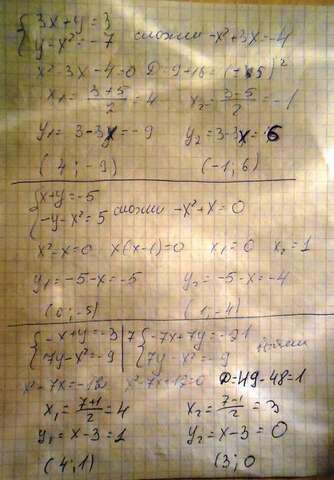 {3x+y=3
{y=x²=-7 сложи -x²+3x=-4
x²-3x-4=0 D=9+16=(-5)²
x₁=(3+5)/2=4 x₂=(3-5)/2=-1
y₁=3-3x=-9 y₂=3-3x=6
(4;-9) (-1;6)
{x+y=-5
{-y-x²=5 сложи -x²+x=0
x²-x=0 x(x-1)=0 x₁=0 x₂=1
y₁=-5-x=-5 y₂=-5-x=-4
(0;-5) (1;-4)
{-x+y=-3 |7 {-7x+7y=-21
{7y-x²=-9 {7y-x²=-9
x²-7x=-12 x²-7x+12=0 D=49-48=1
x₁=(7+1)/2=4 x₂=(7-1)/2=3
y₁=x-3=1 y₂=x-3=0
(4;1) (3;0